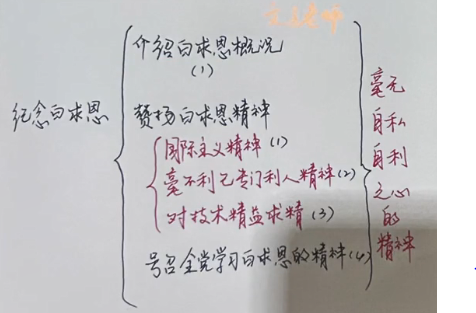 介绍白求恩概况
(1)
纪念白求恩
赞扬白求恩精神
国际主义精神(1)
毫不利己专门利人精神(2)
对技术精益求精(3)
号召全党学习白求恩的精神(4)
毫无
自私
自利
之心
的
精神